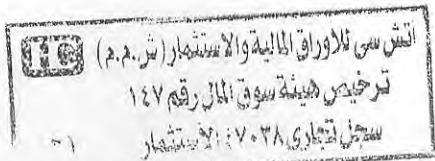 اتش سى للأوراق المالية والاستثمار (ش.م.م) HC
ترخيص هيئة سوق المال رقم ١٤٧
سجل تجارى ٤٧٠٣٨ الاستثمار